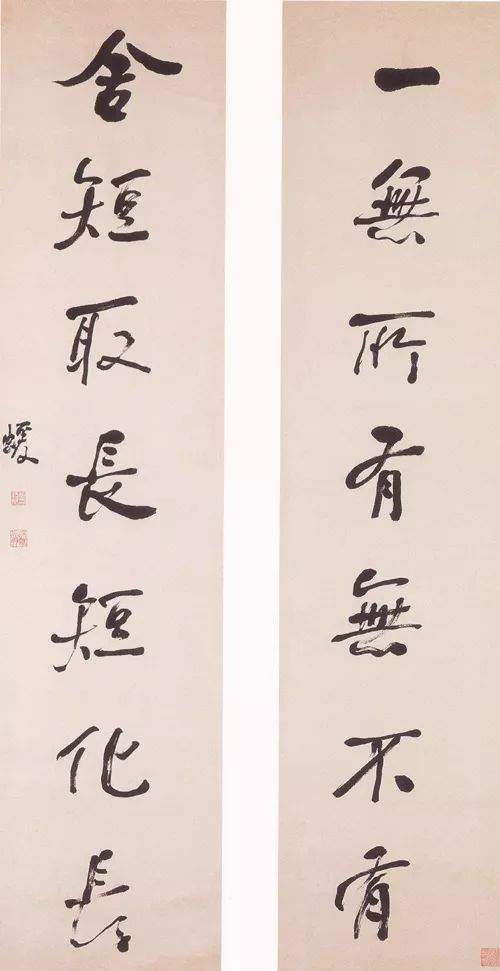 一無所有無不有
舍短取長短化長
蝯